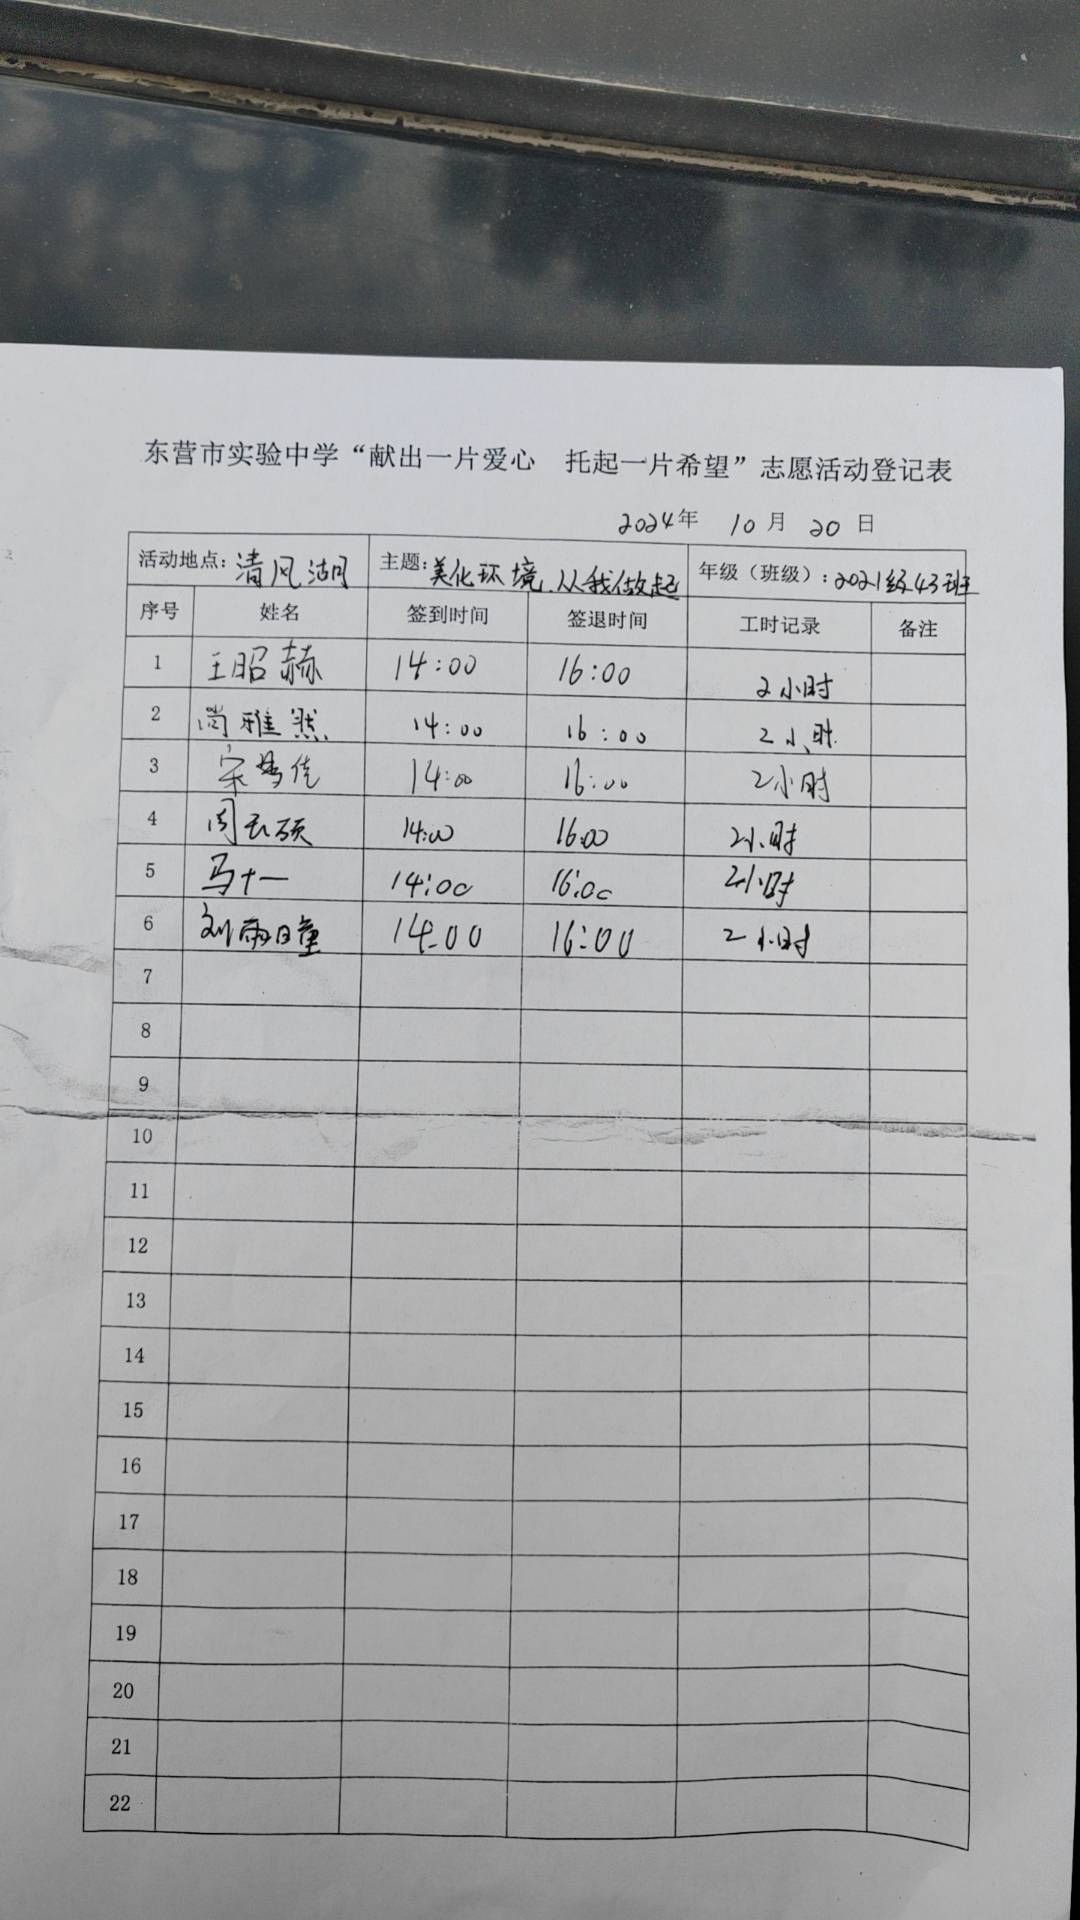 东营市实验中学“献出一片爱心 托起一片希望”志愿活动登记表
2024年 10月 20日
活动地点：清风湖 主题：美化环境.从我做起 年级（班级）：2021级43班
序号 姓名 签到时间 签退时间 工时记录 备注
1 王昭赫 14:00 16:00 2小时
2 尚雅然 14:00 16:00 2小时
3 宋 佳 14:00 16:00 2小时
4 周 硕 14:00 16:00 2小时
5 马十一 14:00 16:00 2小时
6 刘雨曈 14:00 16:00 2小时
7
8
9
10
11
12
13
14
15
16
17
18
19
20
21
22